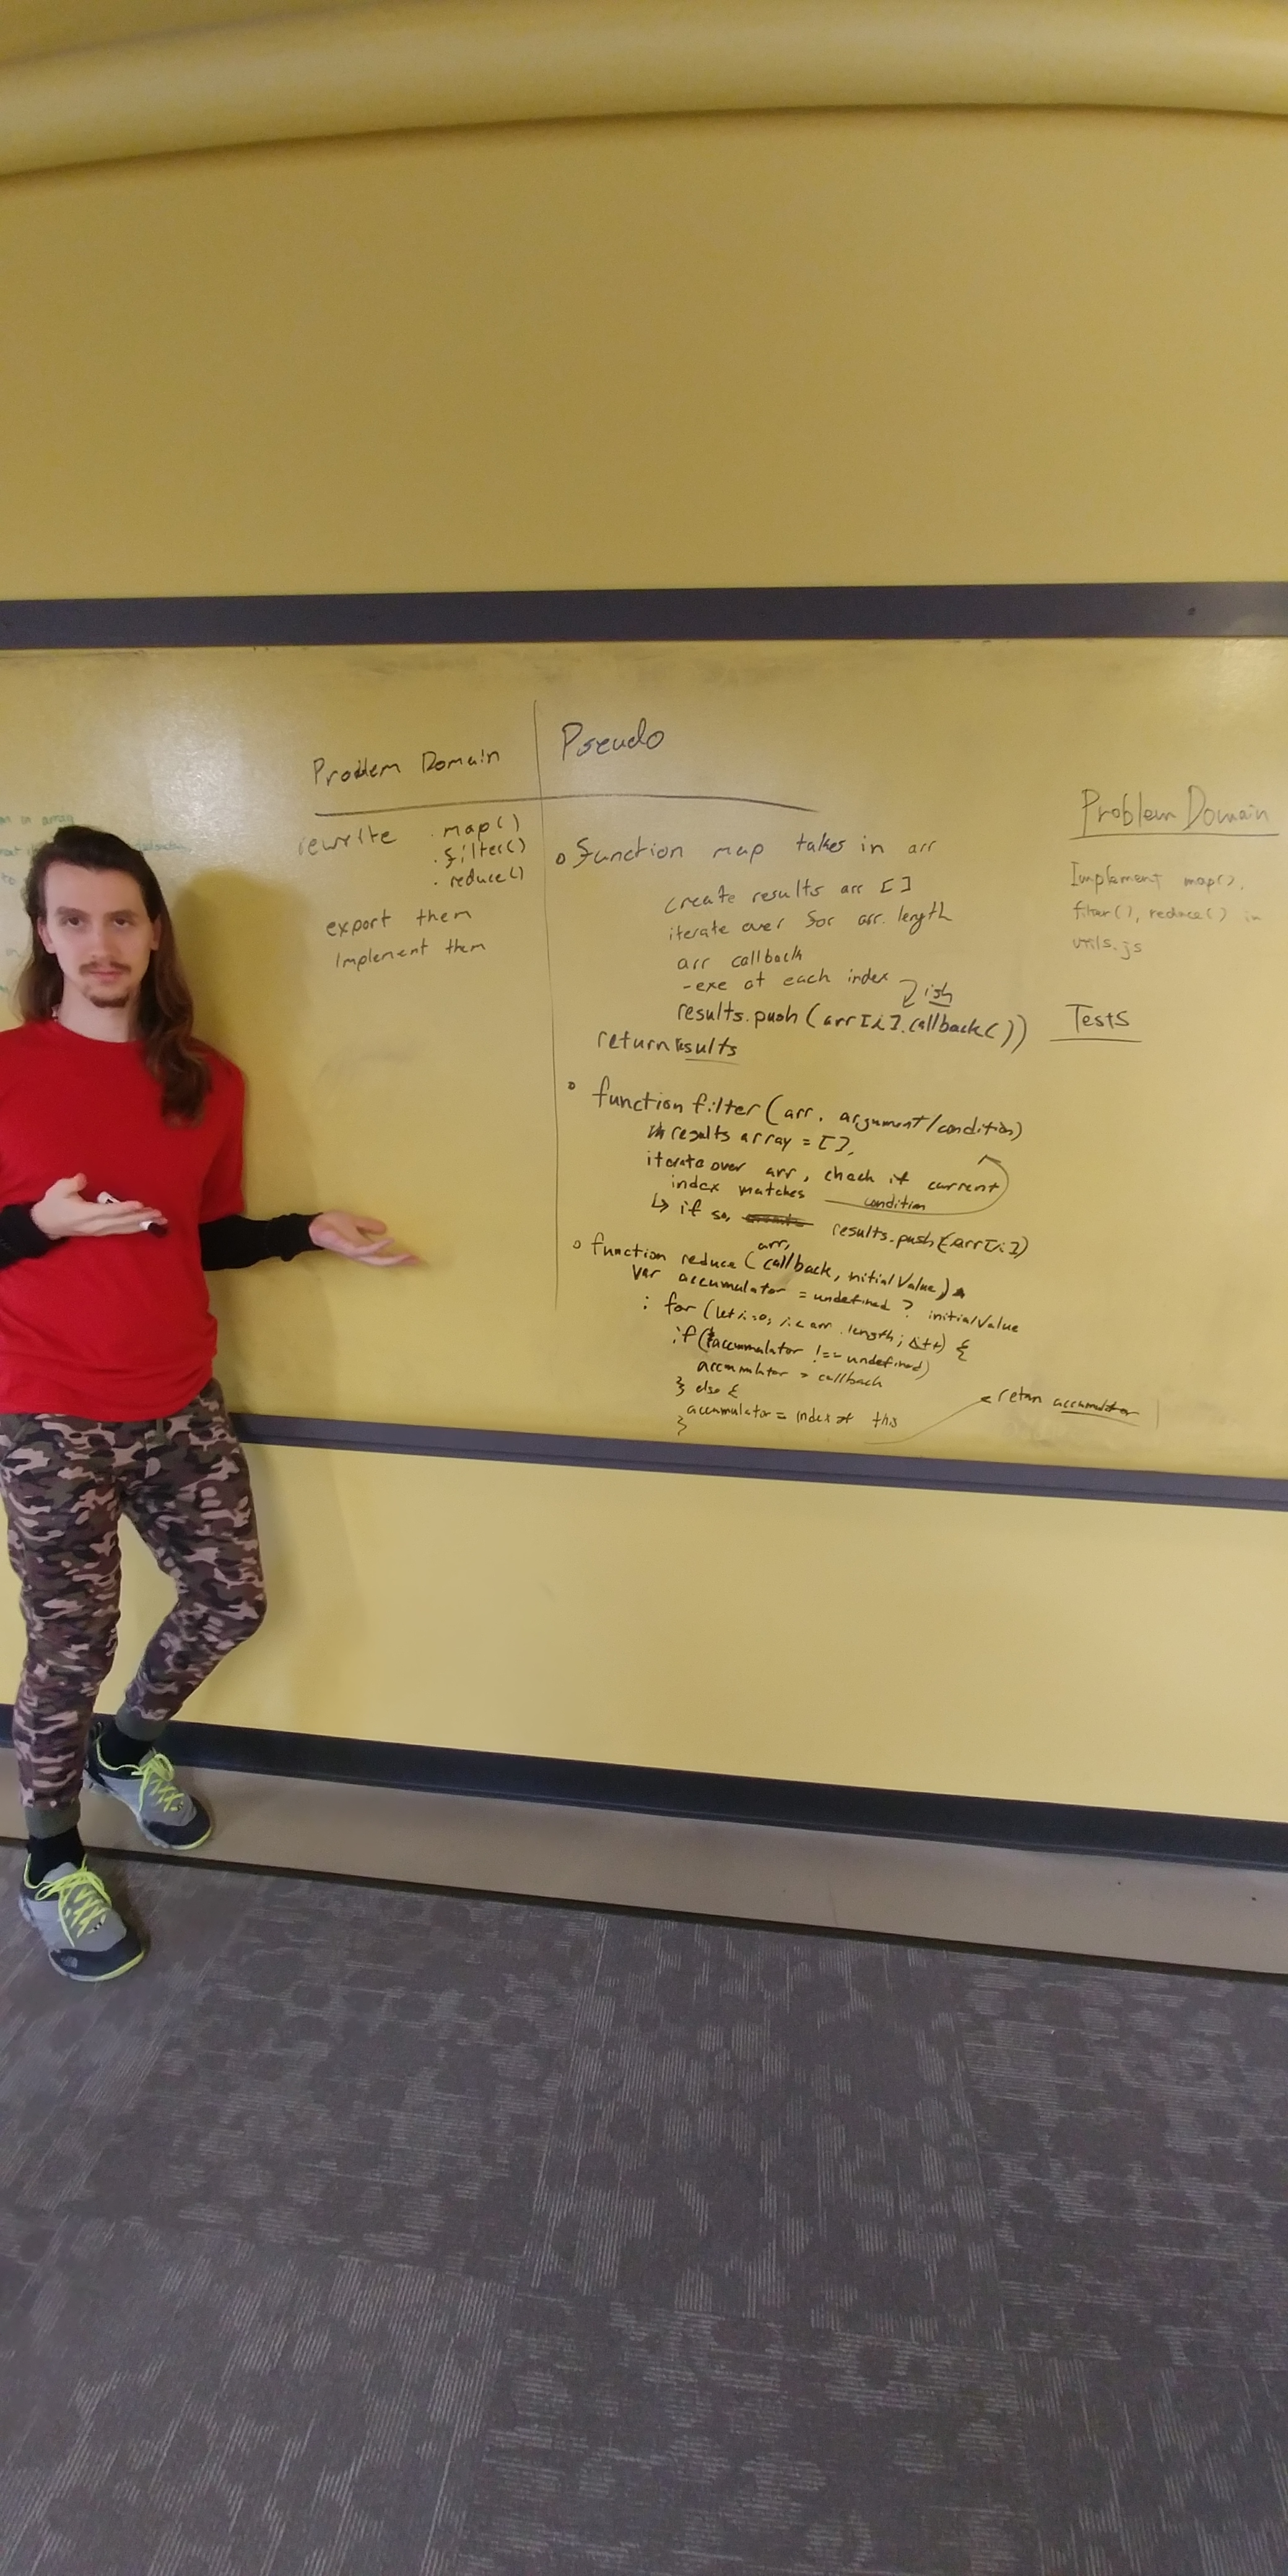 Problem Domain
rewrite .map()
.filter()
.reduce()
export them
Implement them
Pseudo
function map takes in arr
create results arr []
iterate over for arr.length
arr callback
-exe at each index
ish
results.push(arr[i].callback())
return results
function filter(arr, argument/condition)
results array = [],
iterate over arr, check if current
index matches condition
↳ if so, results.push(arr[i])
function reduce(arr, callback, initialValue)
var accumulator = undefined ? initialValue
: for (let i=0; i< arr.length; i++) {
if (accumulator !== undefined)
accumulator = callback
} else {
accumulator = index of this
}
return accumulator
Problem Domain
Implement map(),
filter(), reduce() in
utils.js
Tests
in array